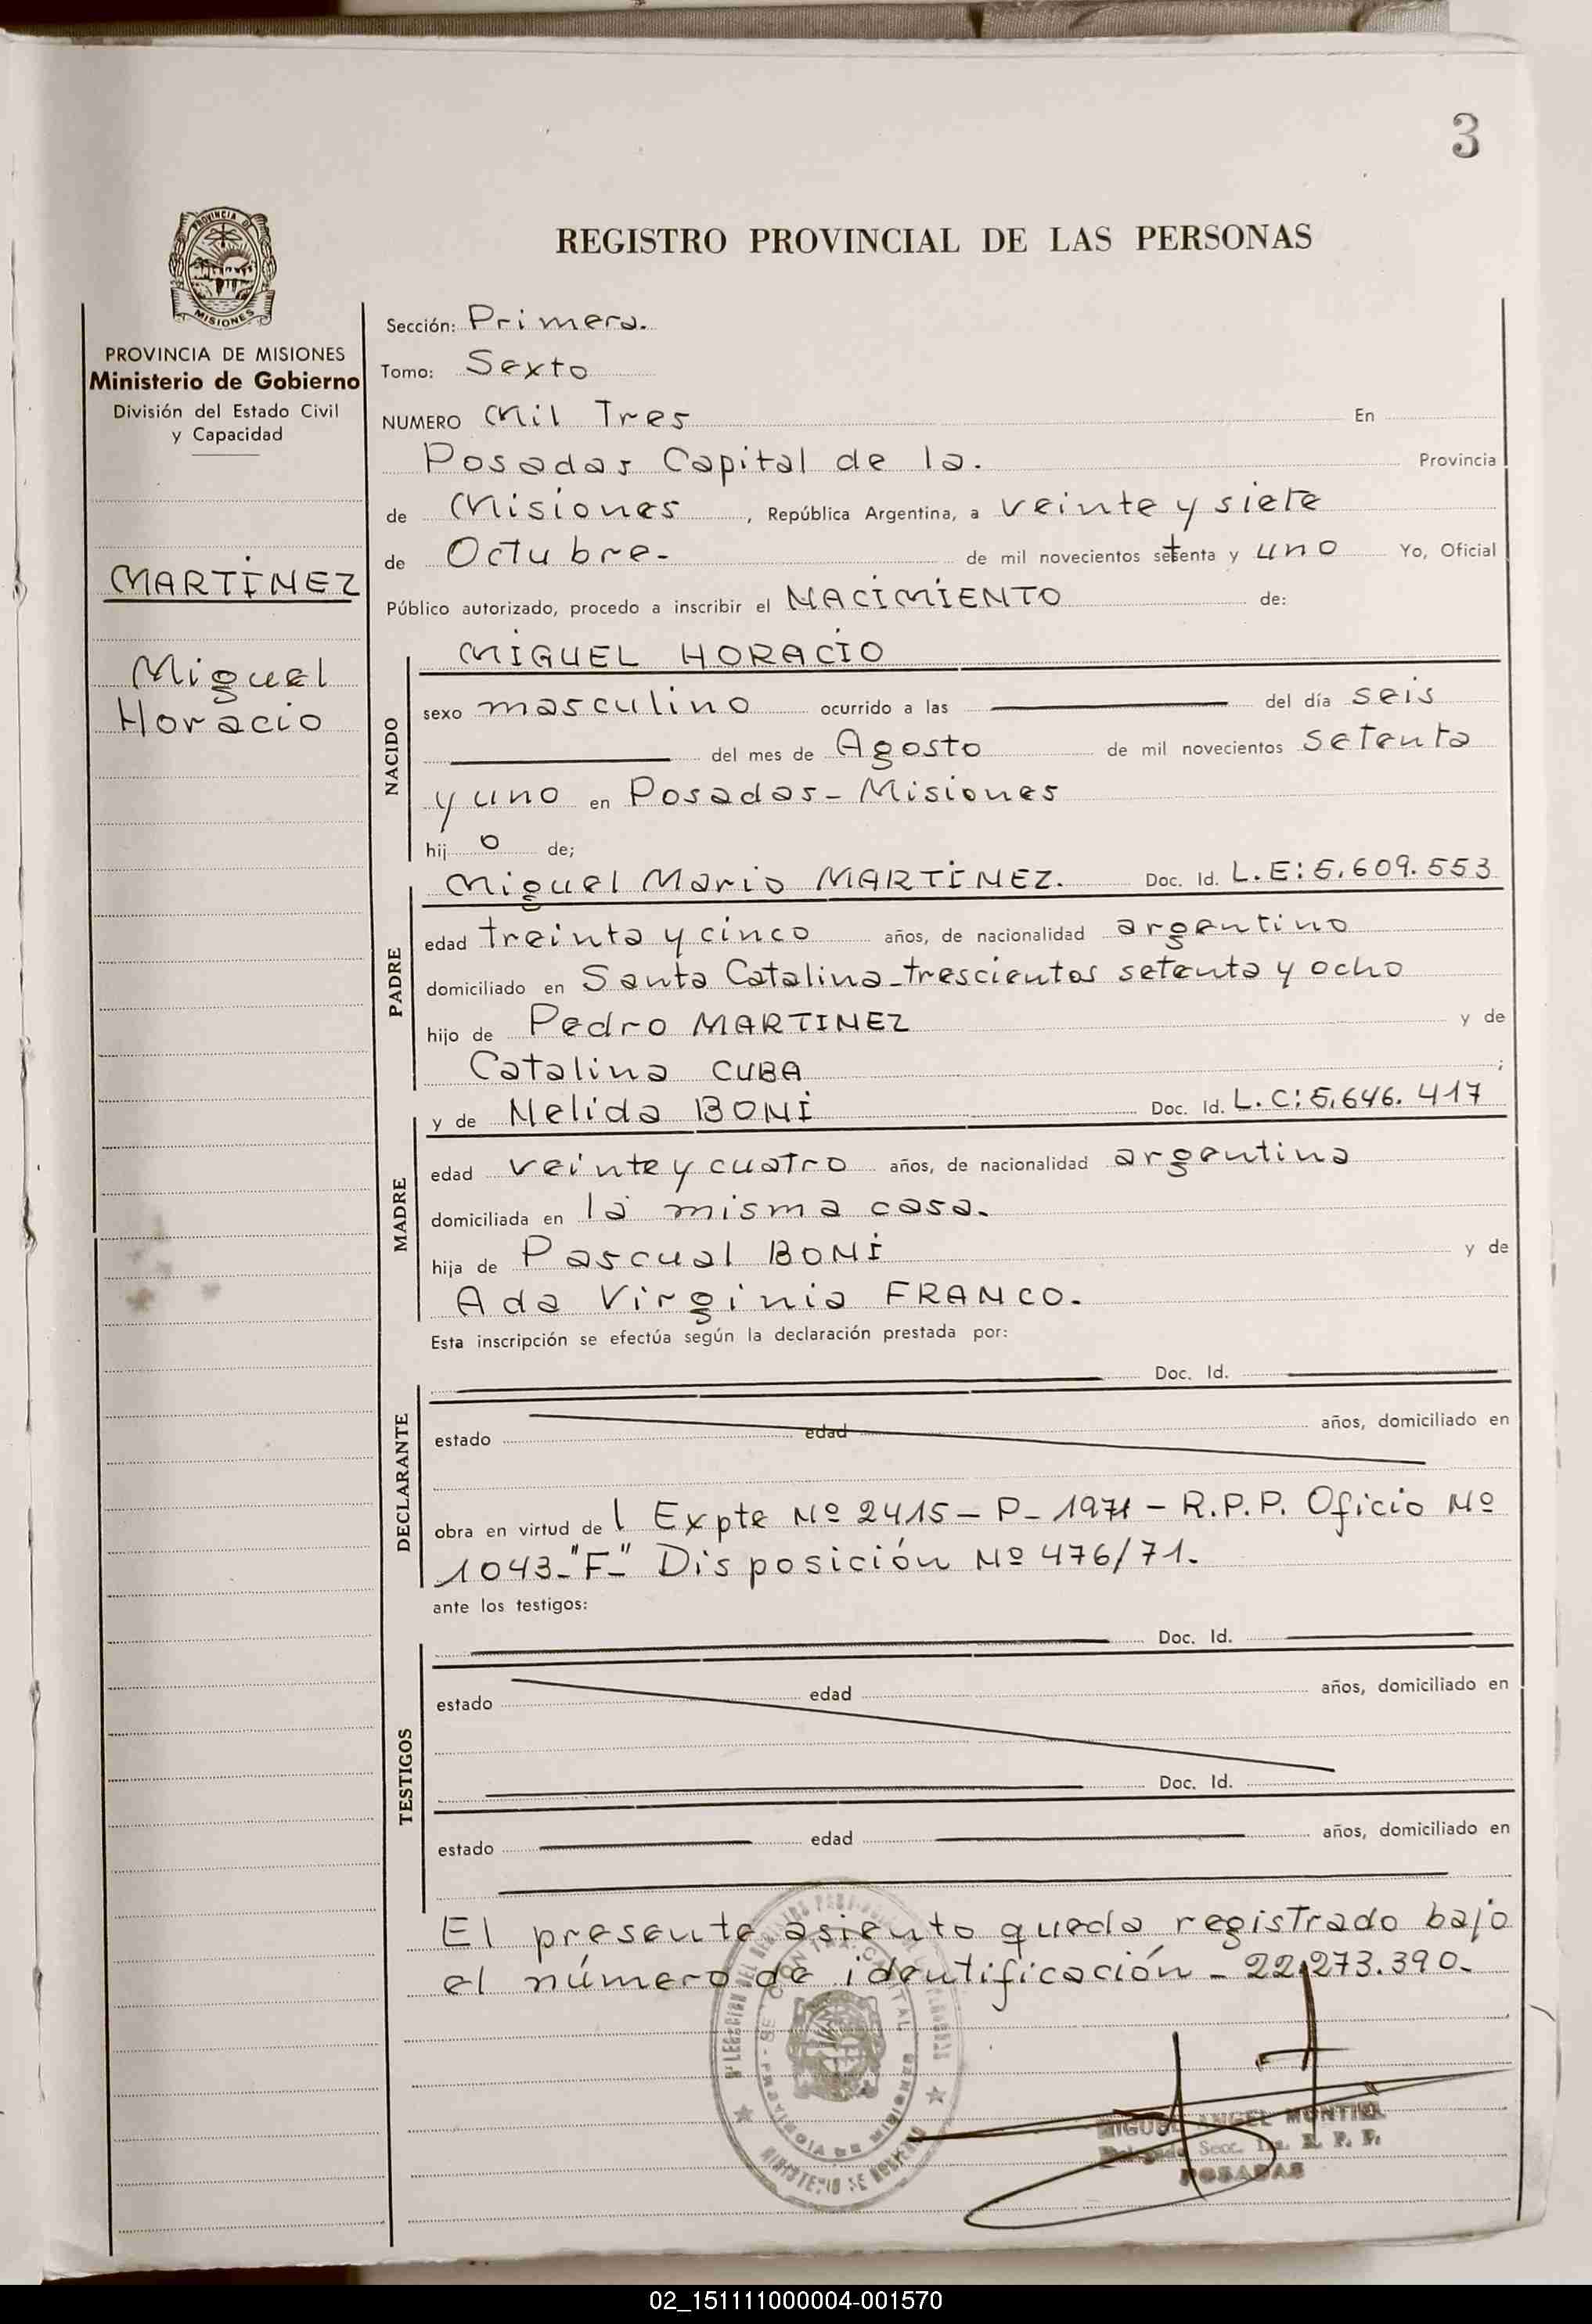 3
PROVINCIA DE
MISIONES
REGISTRO PROVINCIAL DE LAS PERSONAS
PROVINCIA DE MISIONES
Ministerio de Gobierno
División del Estado Civil
y Capacidad
MARTÍNEZ
Miguel
Horacio
Sección: Primera.
Tomo: Sexto
NUMERO Mil Tres En
Posadas Capital de la. Provincia
de Misiones, República Argentina, a veinte y siete
de Octubre. de mil novecientos setenta y uno Yo, Oficial
Público autorizado, procedo a inscribir el NACIMIENTO de:
NACIDO
MIGUEL HORACIO
sexo masculino ocurrido a las del día seis
del mes de Agosto de mil novecientos setenta
y uno en Posadas - Misiones
hij o de;
PADRE
Miguel Mario MARTÍNEZ. Doc. Id. L.E: 5.609.553
edad treinta y cinco años, de nacionalidad argentino
domiciliado en Santa Catalina - trescientos setenta y ocho
hijo de Pedro MARTINEZ y de
Catalina CUBA ;
MADRE
y de Nelida BONI Doc. Id. L.C: 5.646.417
edad veinte y cuatro años, de nacionalidad argentina
domiciliada en la misma casa.
hija de Pascual BONI y de
Ada Virginia FRANCO.
Esta inscripción se efectúa según la declaración prestada por:
DECLARANTE
Doc. Id.
estado edad años, domiciliado en
obra en virtud de l Expte Nº 2415 - P - 1971 - R.P.P. Oficio Nº
1043-"F-" Disposición Nº 476/71.
ante los testigos:
TESTIGOS
Doc. Id.
estado edad años, domiciliado en
Doc. Id.
estado edad años, domiciliado en
El presente asiento queda registrado bajo
el número de identificación - 22.273.390.
MINISTERIO DE GOBIERNO
PROVINCIA DE MISIONES
MIGUEL ANGEL MONTIEL
Delegado Secc. 1a. R. P. P.
POSADAS
02_151111000004-001570